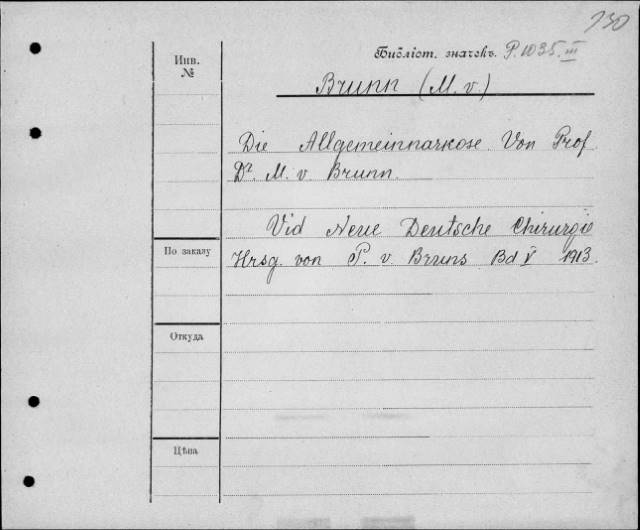 730
Инв.
№
Библіот. значекъ. P. 1035. III
Brunn (M. v.)
Die Allgemeinnarkose. Von Prof.
Dr. M. v. Brunn.
Vid Neue Deutsche Chirurgie
Hrsg. von P. v. Bruns Bd V 1913.
По заказу
Откуда
Цѣна